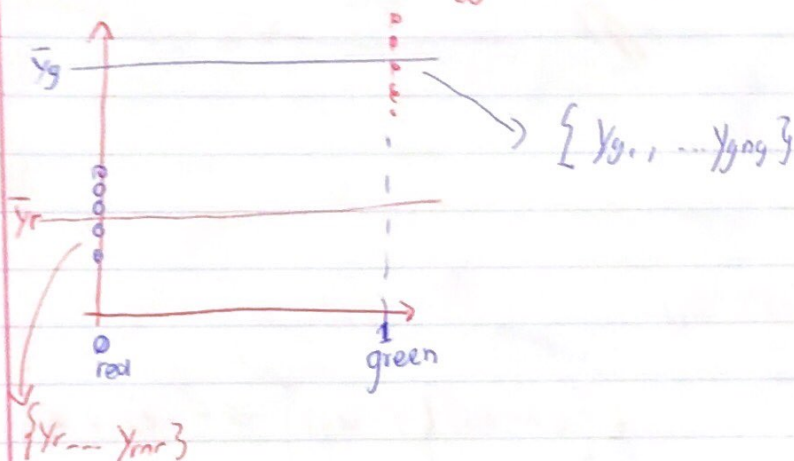 ȳg
{ yg1, ... ygng }
ȳr
0
red
1
green
{yr... yrnr}